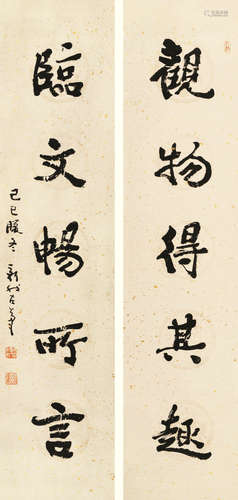 觀物得其趣
臨文暢所言
己巳暖冬